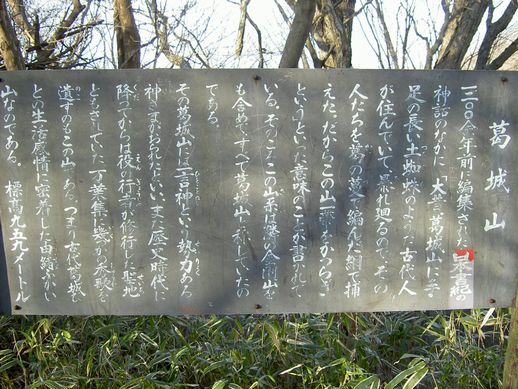 葛城山
一三〇〇余年前に編集された日本書紀の
神話のなかに「大昔、葛城山に手
足の長い土蜘蛛のような古代人
が住んでいて暴れ廻るので、その
人たちを葛の蔓で編んだ網で捕
えた。だからこの山を葛城山
という」といった意味のことが書かれて
いる。そのころこの山系は隣りの金剛山を
も含めてすべて葛城山と称していたの
である。
その葛城山に一言神という勢力ある
神さまがおられたといい、また人皇時代に
降ってからは役の行者が修行した聖地
ともされていた。万葉集に幾多の秀歌を
遺すのもこの山であり、つまり古代葛城びと
との生活感情に密着した由緒ふかい
山なのである。 標高九五九メートル